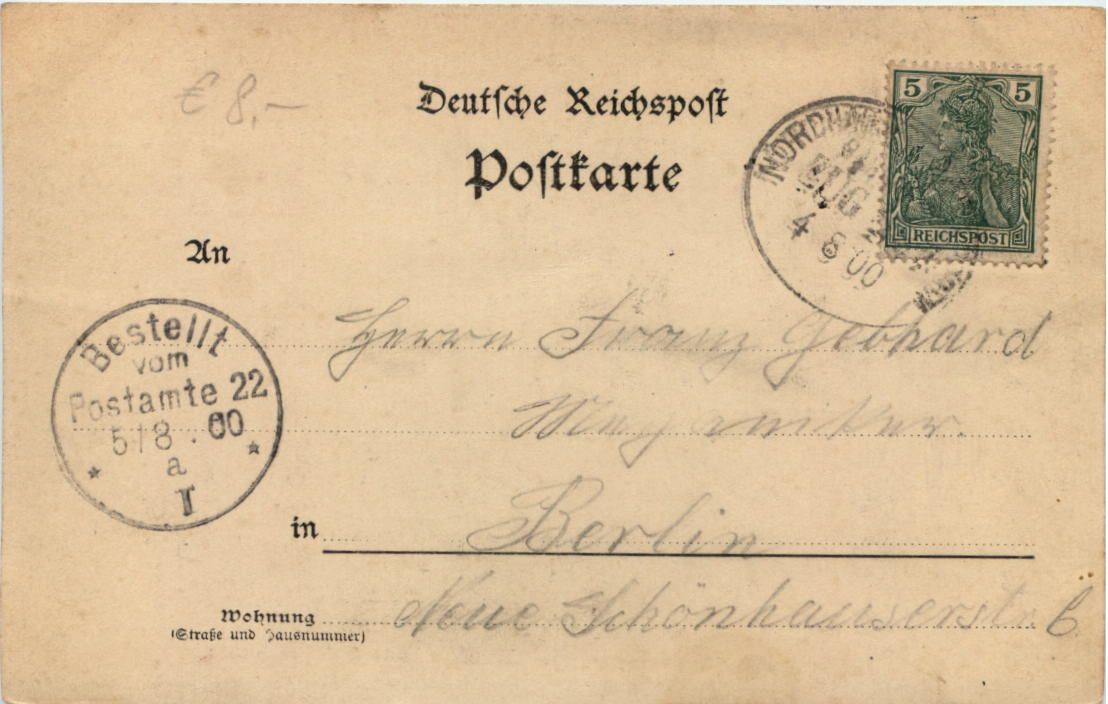 € 8,-
Deutsche Reichspost
Postkarte
5 5
REICHSPOST
ZUG
4 8 00
An
Bestellt
vom
Postamte 22
5/8. 00
a
I
Herrn Franz Gebhard
in Berlin
Wohnung Neue Schönhauserstr. 6
(Straße und Hausnummer)